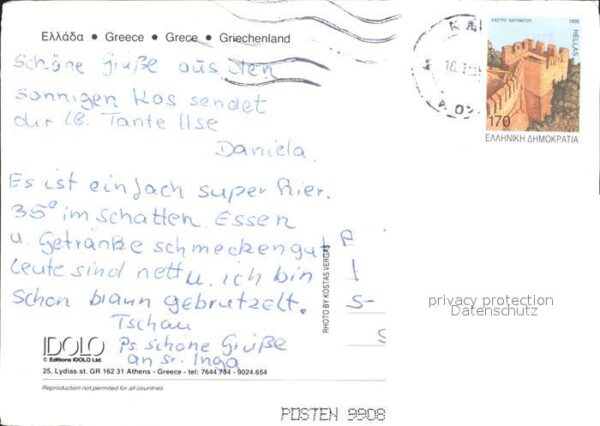 Ελλάδα • Greece • Grece • Griechenland
Schöne Grüße aus den
sonnigen Kos sendet
dir lb. Tante Ilse
Daniela.
Es ist einfach super hier.
35° im Schatten. Essen
u. Getränke schmecken gut
Leute sind nett u. ich bin
schon braun gebrutzelt.
Tschau
Ps. schöne Grüße
an Sr. Inga
IDOLO
© Editions IDOLO Ltd.
25, Lydias st. GR 162 31 Athens - Greece - tel: 7644.734 - 9024.654
Reproduction not permitted for all countries
PHOTO BY KOSTAS VERGAS
A
I
S-
ΚΑΣΤΡΟ ΝΑΥΠΑΚΤΟΥ
1998
HELLAS
170
ΕΛΛΗΝΙΚΗ ΔΗΜΟΚΡΑΤΙΑ
privacy protection
Datenschutz
POSTEN 9908